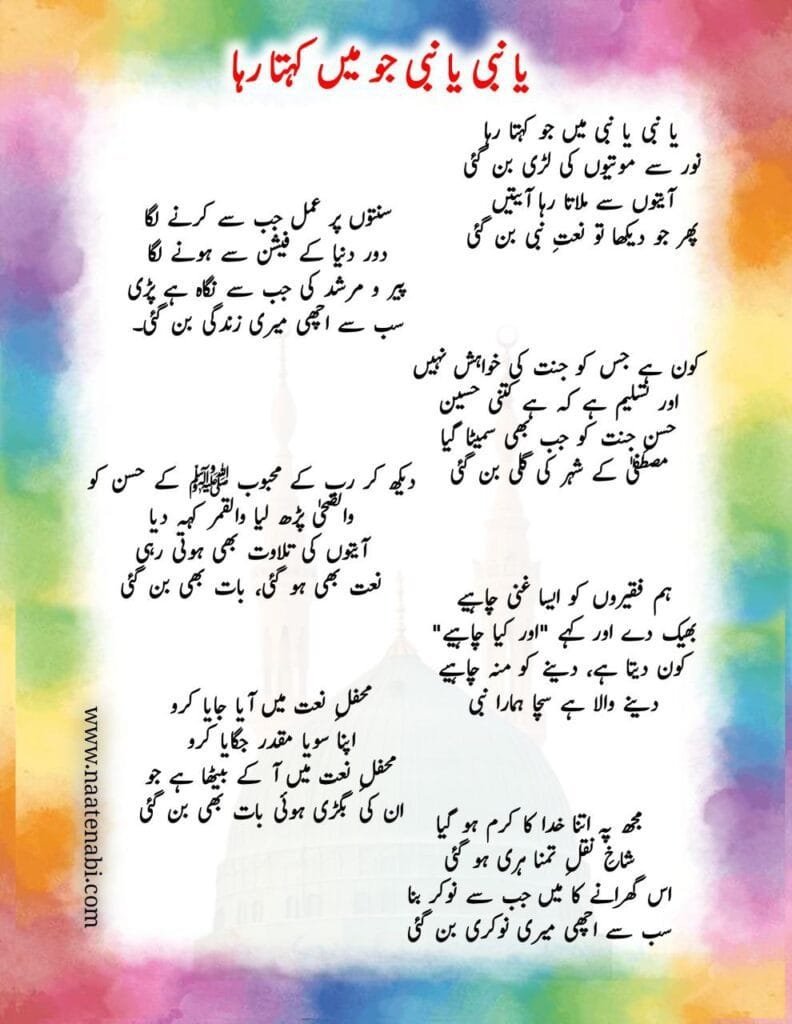 یا نبی یا نبی جو میں کہتا رہا
یا نبی یا نبی میں جو کہتا رہا
نور سے موتیوں کی لڑی بن گئی
آیتوں سے ملاتا رہا آیتیں
پھر جو دیکھا تو نعتِ نبی بن گئی
سنتوں پر عمل جب سے کرنے لگا
دور دنیا کے فیشن سے ہونے لگا
پیر و مرشد کی جب سے نگاہ ہے پڑی
سب سے اچھی میری زندگی بن گئی۔
کون ہے جس کو جنت کی خواہش نہیں
اور تسلیم ہے کہ ہے کتنی حسین
حسنِ جنت کو جب بھی سمیٹا گیا
مصطفیٰ کے شہر کی گلی بن گئی
دیکھ کر رب کے محبوب ﷺ کے حسن کو
والضحیٰ پڑھ لیا والقمر کہہ دیا
آیتوں کی تلاوت بھی ہوتی رہی
نعت بھی ہو گئی، بات بھی بن گئی
ہم فقیروں کو ایسا غنی چاہیے
بھیک دے اور کہے "اور کیا چاہیے"
کون دیتا ہے، دینے کو منہ چاہیے
دینے والا ہے سچا ہمارا نبی
محفلِ نعت میں آیا جایا کرو
اپنا سویا مقدر جگایا کرو
محفلِ نعت میں آ کے بیٹھا ہے جو
ان کی بگڑی ہوئی بات بھی بن گئی
مجھ پہ اتنا خدا کا کرم ہو گیا
شاخِ نقلِ تمنا ہری ہو گئی
اس گھرانے کا میں جب سے نوکر بنا
سب سے اچھی میری نوکری بن گئی
www.naatenabi.com